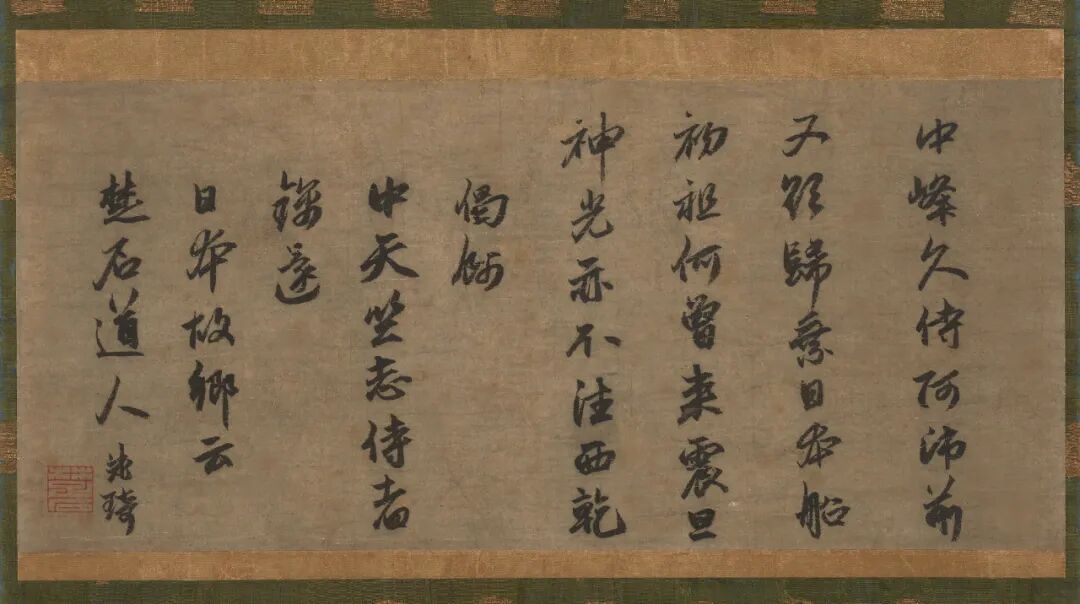 中峰久侍阿師前
又欲歸乘日本船
初祖何曾来震旦
神光亦不往西乾
偈餞
中天竺志侍者
錦還
日本故鄉云
楚石道人 梵琦